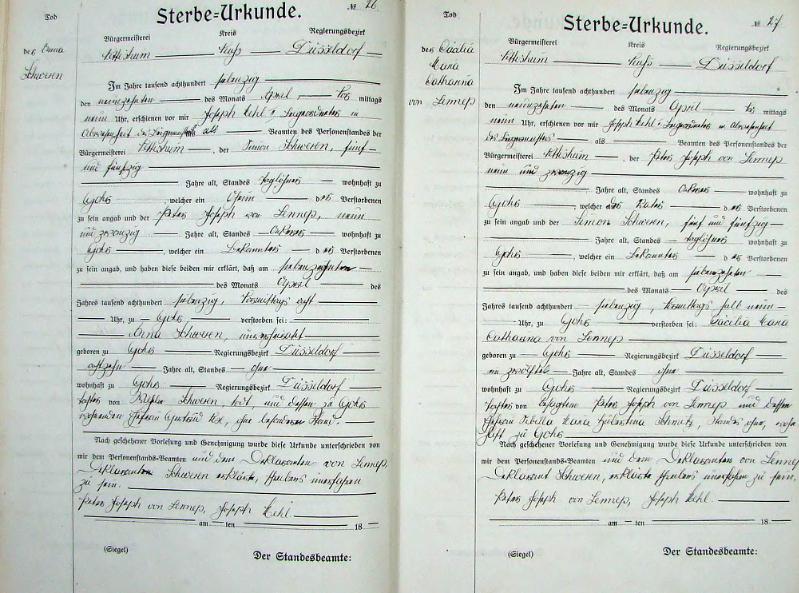 Tod
№ 26
Sterbe-Urkunde.
Bürgermeisterei Kreis Regierungsbezirk
Düsseldorf
der Anna
Schween
Im Jahre tausend achthundert siebenzig
den neunzehnten des Monats April mittags
neun Uhr, erschienen vor mir Joseph
als Beamten des Personenstandes der
Bürgermeisterei , der Simon Schween, fünf
und fünfzig
Jahre alt, Standes wohnhaft zu
Gohr, welcher ein Oheim der Verstorbenen
zu sein angab und der Peter Joseph von Lennep, neun
und zwanzig Jahre alt, Standes Ackerer wohnhaft zu
Gohr, welcher ein Bekannter der Verstorbenen
zu sein angab, und haben diese beiden mir erklärt, daß am siebenzehnten
des Monats April des
Jahres tausend achthundert siebenzig, Vormittags acht
Uhr, zu Gohr, verstorben sei:
Anna Schween, unverheiratet
geboren zu Gohr Regierungsbezirk Düsseldorf
achtzehn Jahre alt, Standes ohne
wohnhaft zu Gohr Regierungsbezirk Düsseldorf
Tochter von Schween, todt, und dessen zu Gohr
Ehefrau Gertrud ohne besonderen Stand.
Nach geschehener Vorlesung und Genehmigung wurde diese Urkunde unterschrieben von
mir dem Personenstands-Beamten und dem Deklaranten von Lennep,
Deklarant Schween erklärte, Schreibens unerfahren
zu sein.
Peter Joseph von Lennep, Joseph
am ten 18
(Siegel) Der Standesbeamte:
Tod
№ 27
Sterbe-Urkunde.
Bürgermeisterei Kreis Regierungsbezirk
Düsseldorf
der Cäcilia
Maria
Catharina
von Lennep
Im Jahre tausend achthundert siebenzig
den neunzehnten des Monats April mittags
neun Uhr, erschienen vor mir Joseph
als Beamten des Personenstandes der
Bürgermeisterei , der Peter Joseph von Lennep
neun und zwanzig
Jahre alt, Standes Ackerer wohnhaft zu
Gohr, welcher der Vater der Verstorbenen
zu sein angab und der Simon Schween, fünf und fünfzig
Jahre alt, Standes wohnhaft zu
Gohr, welcher ein Bekannter der Verstorbenen
zu sein angab, und haben diese beiden mir erklärt, daß am siebenzehnten
des Monats April des
Jahres tausend achthundert siebenzig, Vormittags halb neun
Uhr, zu Gohr verstorben sei: Cäcilia Maria
Catharina von Lennep
geboren zu Gohr Regierungsbezirk Düsseldorf
Jahre alt, Standes ohne
wohnhaft zu Gohr Regierungsbezirk Düsseldorf
Tochter von besagtem Peter Joseph von Lennep und dessen
Ehefrau Sibilla Maria Hubertina Schmitz, Standes ohne,
zu Gohr
Nach geschehener Vorlesung und Genehmigung wurde diese Urkunde unterschrieben von
mir dem Personenstands-Beamten und dem Deklaranten von Lennep
Deklarant Schween, erklärte Schreibens unerfahren zu sein.
Peter Joseph von Lennep, Joseph
am ten 18
(Siegel) Der Standesbeamte: